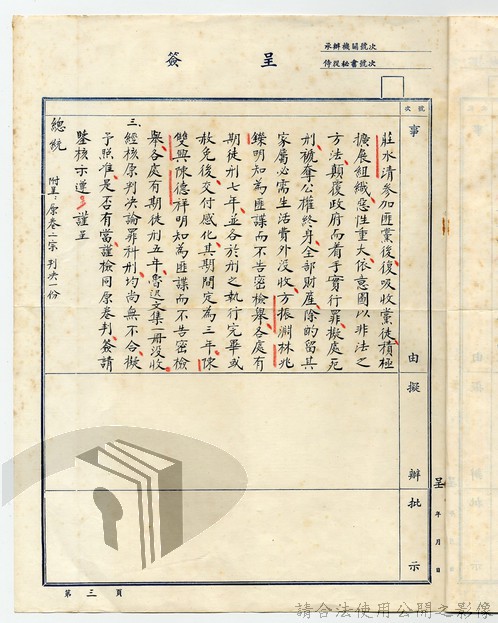 簽呈
承辦機關號次
侍從秘書號次
號次
事由
擬辦
批示
莊水清參加匪黨後後吸收黨徒積極
擴展組織惡性重大依意圖以非法之
方法顛覆政府而着手實行罪擬處死
刑褫奪公權終身全部財產除酌留其
家屬必需生活費外沒收方振淵林兆
鑠明知為匪諜而不告密檢舉各處有
期徒刑七年並各於刑之執行完畢或
赦免後交付感化其期間定為三年陳
雙興陳德祥明知為匪諜而不告密檢
舉各處有期徒刑五年魯迅文集一冊沒收
三、經核原判決論罪科刑均尚無不合擬
予照准是否有當謹檢同原卷判簽請
鑒核示遵謹呈
總統
附呈:原卷一宗判決一份
呈 年 月 日
第三頁
請合法使用公開之影像